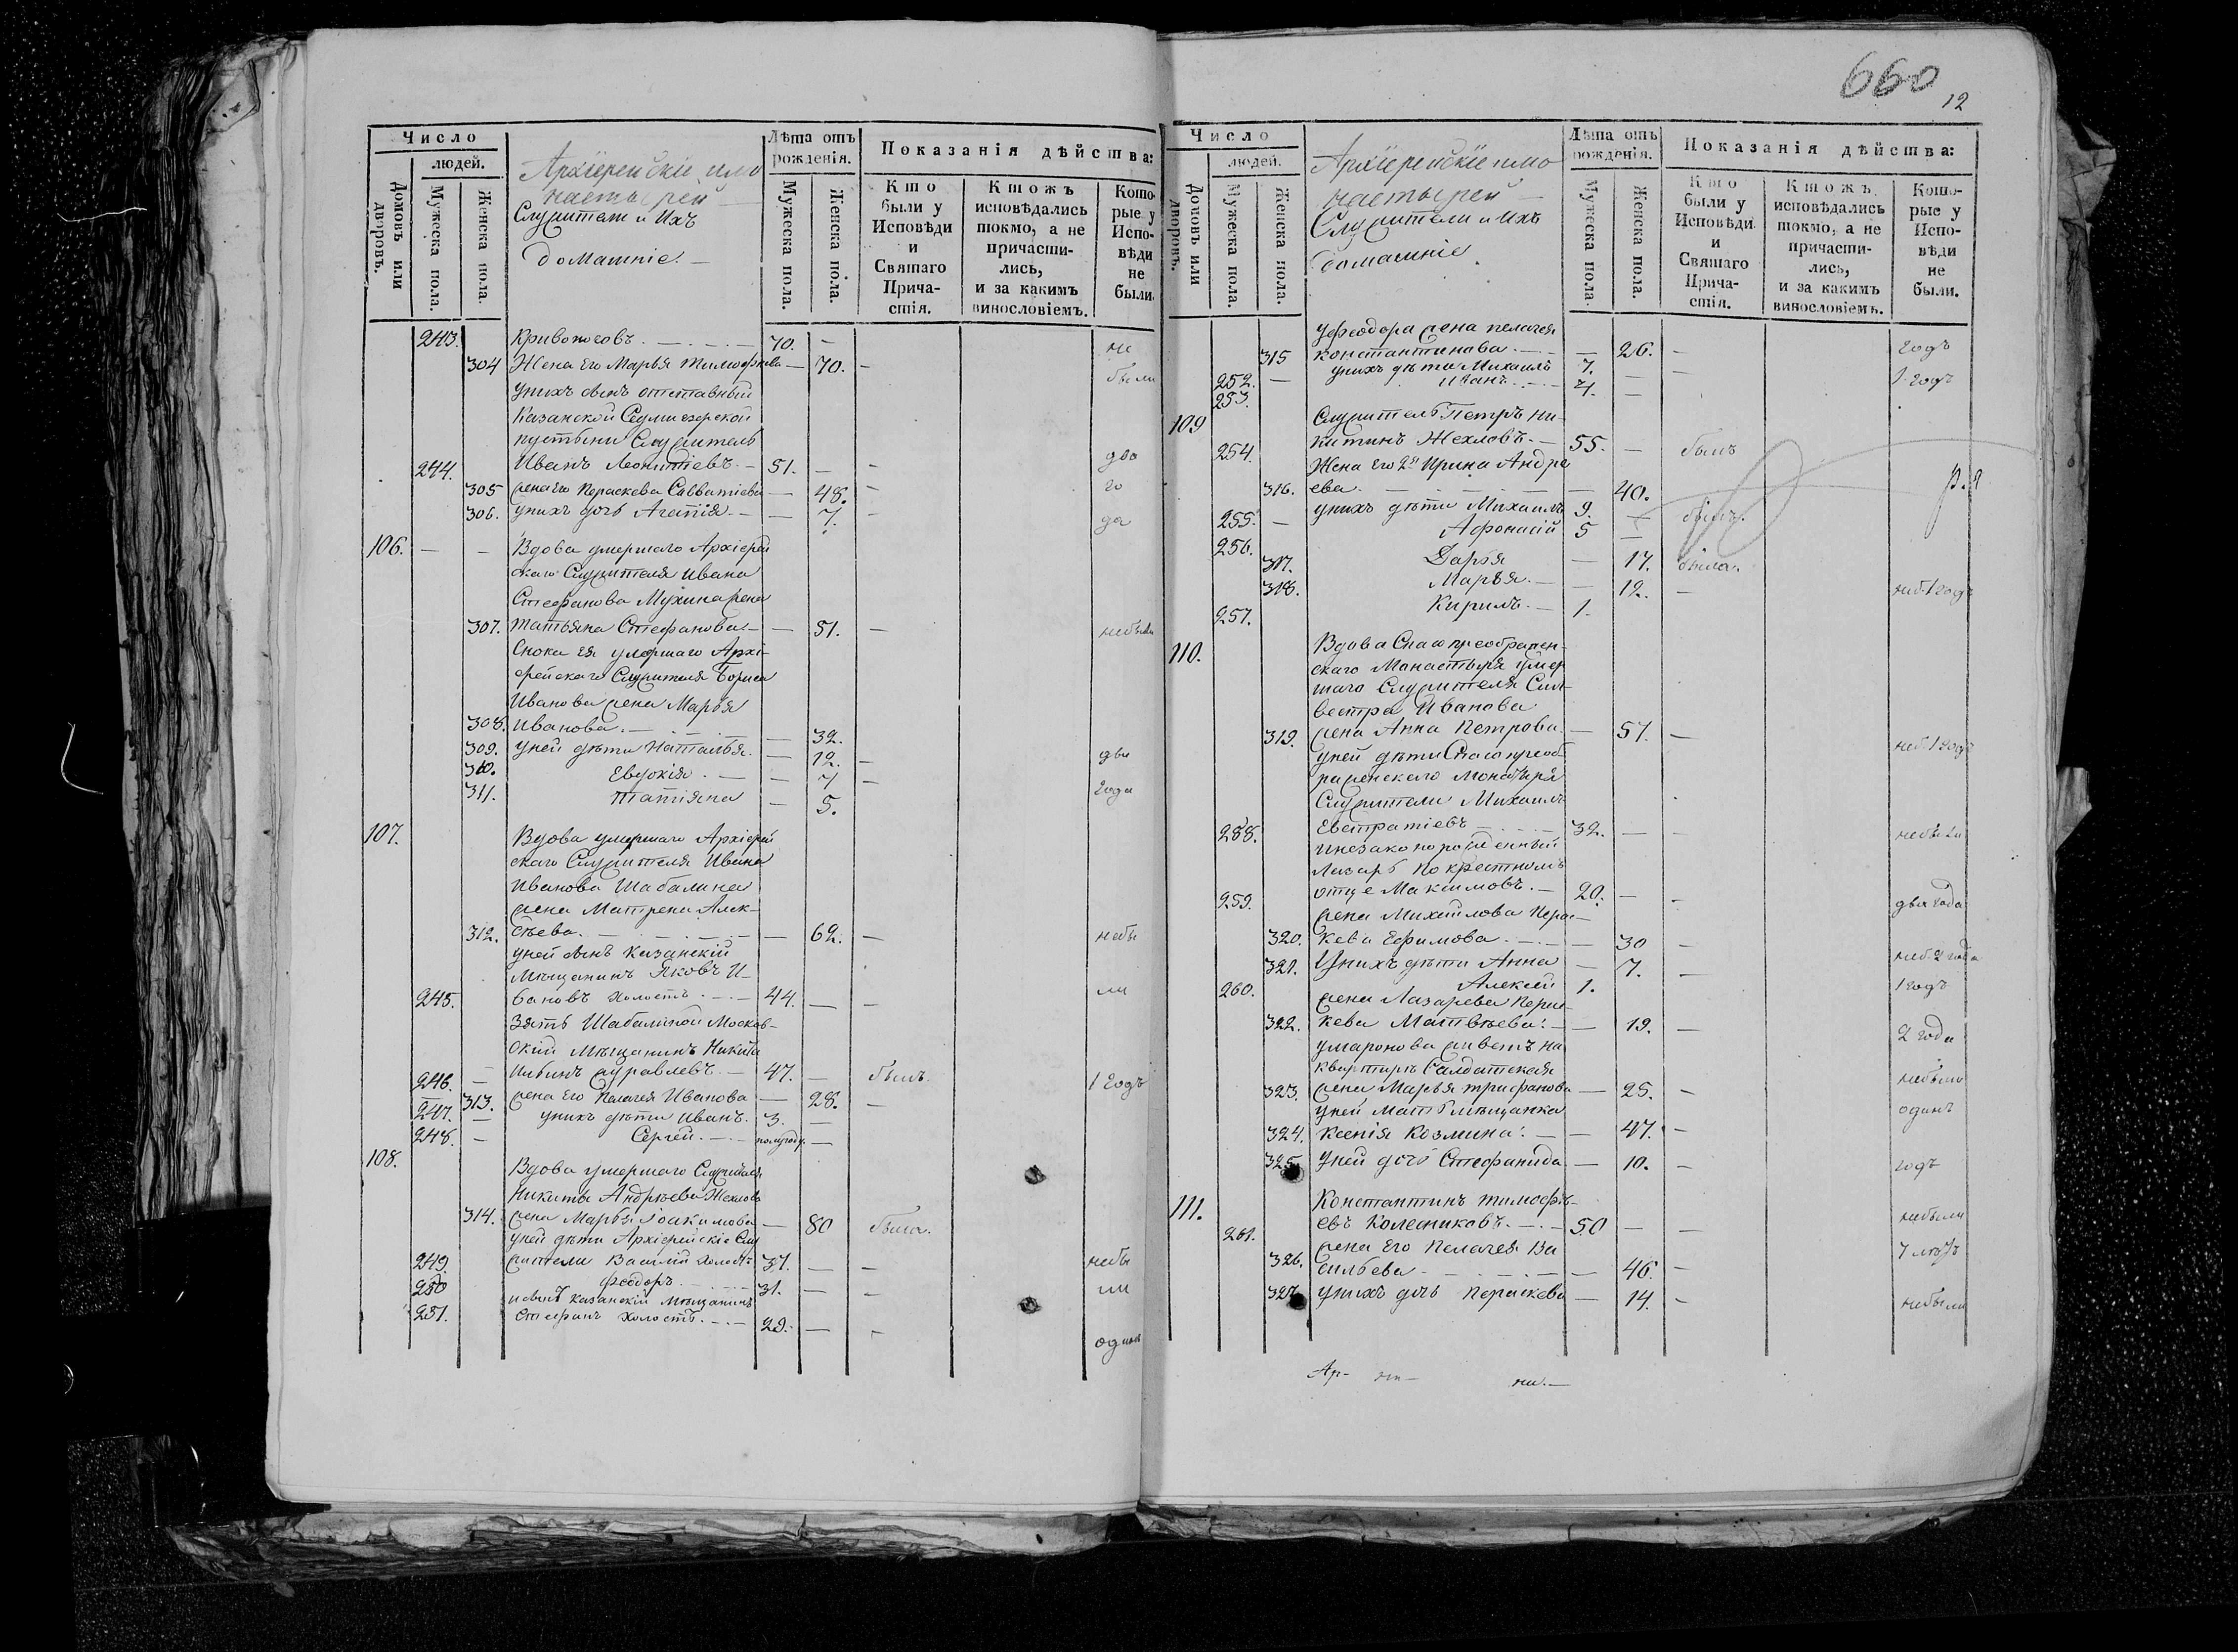 660
12
Число
людей.
Домовъ или дворовъ.
Мужеска пола.
Женска пола.
Архіерейскіе и мо
настырей
Служители и Ихъ
домашніе.
Лѣта отъ рожденія.
Мужеска пола.
Женска пола.
Показанія дѣйства:
Кто были у Исповѣди и Святаго Прича- стія.
Ктожъ исповѣдались токмо, а не причасти- лись, и за какимъ винословіемъ.
Кото- рые у Испо- вѣди не были.
243. Кривоносовъ. — 70. — не
304 Жена Его Марья Тимофѣева — 70. — были
Унихъ сынъ отставный
Казанской Седмиезерской
пустыни Служитель
244. Иванъ Леонтіевъ. — 51. — — два
305 жена Его Параскева Савватіева — 48. — го
306. унихъ дочь Агапія. — — 7. — да
106. — — Вдова умершаго Архіерей
скаго Служителя Ивана
Стефанова Мухина жена
307. Татьяна Стефанова. — — 51. — небыли
Сноха Ея умершаго Архі-
ерейскаго Служителя Бориса
Иванова жена Марья
308. Иванова. — — 32.
309. уней дѣти Наталья. — — 12. — два
310. Евдокія. — — 7 — года
311. Татіяна — 5.
107. Вдова умершаго Архіерей
скаго Служителя Ивана
Иванова Шабалина
жена Матрена Алек-
312. сѣева. — — 62. — небы
уней сынъ Казанскій
Мѣщанинъ Яковъ И-
245. вановъ холостъ. — 44. — — ли
Зять Шабалиной Москов-
ской Мѣщанинъ Никита
246. — Журавлевъ. — 47. — былъ. 1 годъ
247. 313. жена Его Пелагея Иванова — 28. —
— унихъ дѣти Иванъ. 3. —
248. — Сергей. — полугоду. —
108. Вдова умершаго Служителя
Никиты Андрѣева Жехлова
314. жена Марья Іоакимова — 80 была.
уней дѣти Архіерейскіе Слу
249. жители Василій холостъ 37. — — небы
250 Феодоръ. — 31. — — ли
исынъ Казанскій Мѣщанинъ
251. Стефанъ холостъ. — 29. — — одинъ
Число
людей.
Домовъ или дворовъ.
Мужеска пола.
Женска пола.
Архіерейскіе и мо
настырей
Служители и Ихъ
домашніе.
Лѣта отъ рожденія.
Мужеска пола.
Женска пола.
Показанія дѣйства:
Кто были у Исповѣди и Святаго Прича- стія.
Ктожъ исповѣдались токмо, а не причасти- лись, и за какимъ винословіемъ.
Кото- рые у Испо- вѣди не были.
уфеодора жена пелагея
315 Константинова. — — 26. — годъ
252. — унихъ дѣти Михаилъ 7. — 1 годъ
253. Иванъ. — 4. —
109 Служитель Петръ Ни-
254. китинъ Жехловъ. — 55. — былъ
Жена Его 2я Ирина Андре
316. ева. — — 40.
255. — унихъ дѣти Михаилъ 9. — былъ.
256. Афонасій 5 —
317. Дарья — 17. была.
318. Марья. — — 12. — неб. 1 годъ
257. Кирилъ. — 1.
110. Вдова Спасопреображен-
скаго Монастыря умер
шаго Служителя Сил-
вестра Иванова
319. жена Анна Петрова. — 57. — неб. 1 годъ
уней дѣти Спасопреоб
раженскаго Монастыря
Служители Михаилъ
258. Евстратіевъ — 32. — — небыли
инезаконорожденный
Лазарь по крестномъ
259. отцѣ Максимовъ. — 20. — — два года
жена Михайлова Пара-
320. кева Ефимова. — — 30 — неб. 2 года
321. Унихъ дѣти Анна — 7. —
260. Алексѣй 1. 1 годъ
жена Лазарева Пара-
322. кева Матвѣева. — — 19. — 2 года
живетъ на
квартирѣ Салдатская
323. жена Марья Трифанова — 25. — небыли
уней мать Мѣщанка
324. Ксенія Козмина. — — 47. — одинъ
325. Уней дочь Стефанида — 10. — годъ
111. Константинъ Тимофѣ-
261. евъ Колесниковъ. — 50 — — небыли
жена Его Пелагея Ва
326. сильева — — 46. — 7 лѣтъ
327. унихъ дочь Параскева — 14. — небыли
Ар-